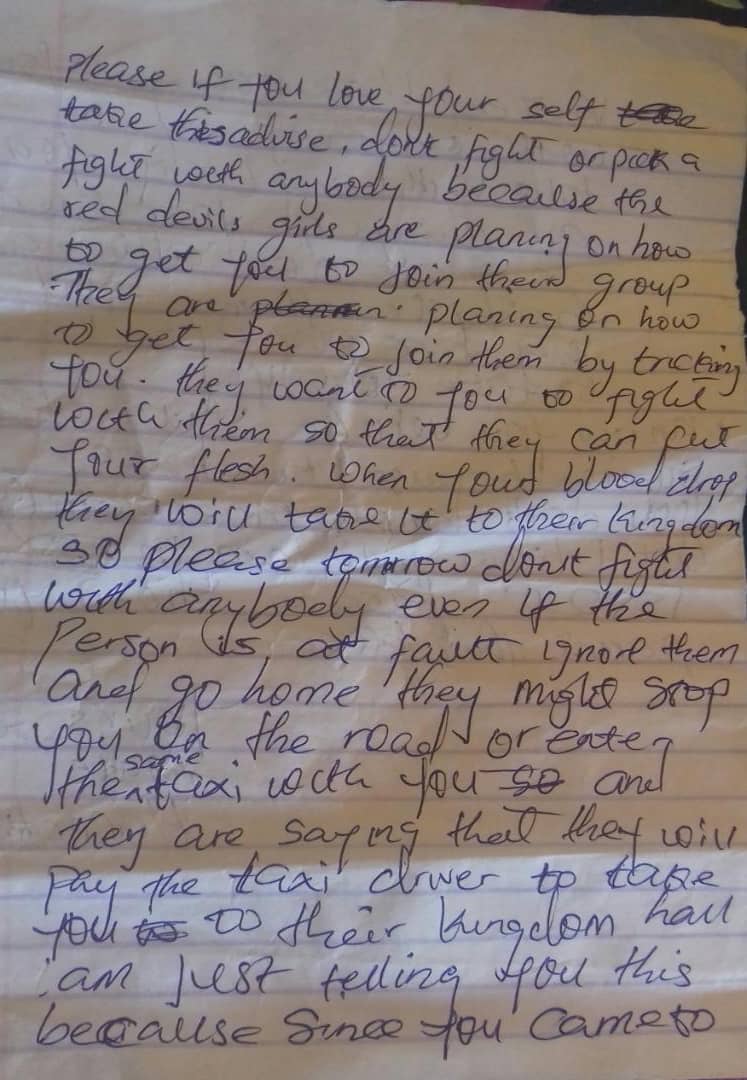 Please if you love your self
take this advise, dont fight or pick a
fight with anybody because the
red devils girls are planing on how
to get you to join their group
They are planing on how
to get you to join them by tricking
you. they want to you to fight
with them so that they can cut
your flesh. when your blood drop
they will take it to their kingdom
so please tomrrow dont fight
with anybody even if the
Person is at fault ignore them
and go home they might stop
you on the road or enter
the same taxi with you and
they are saying that they will
pay the taxi driver to take
you to their kingdom hall
i am just telling you this
because since you came to